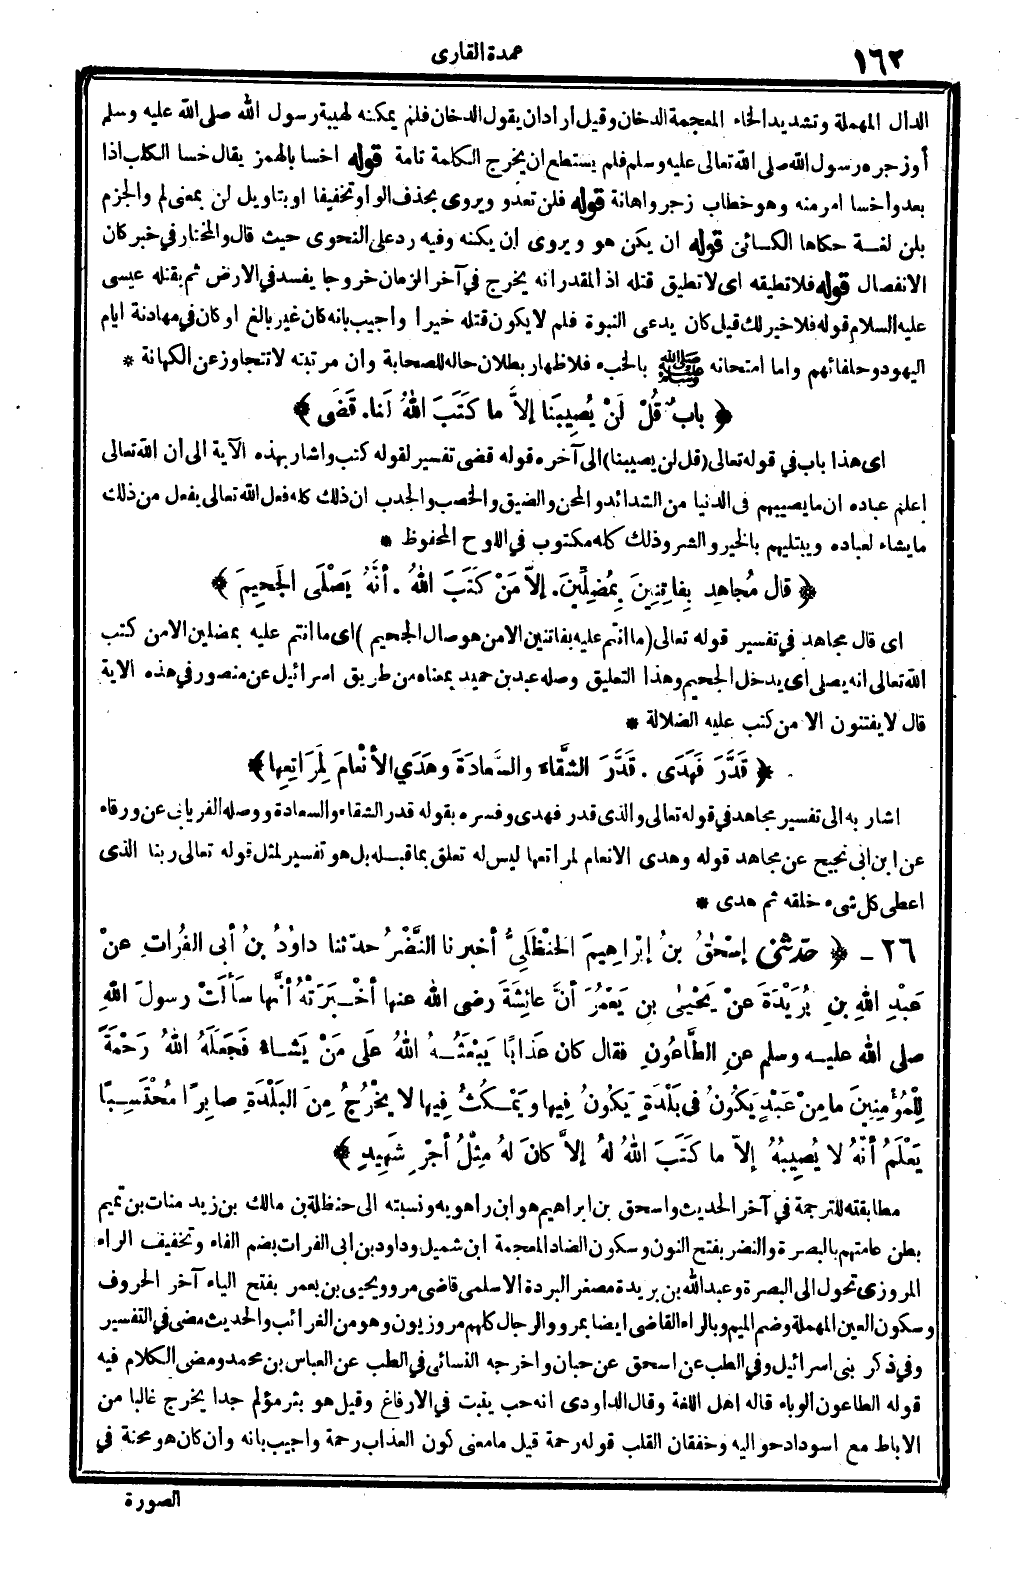 ١٦٢
عمدة القارى
الدال المهملة وتشديد الخاء المعجمة الدخان وقيل أراد ان يقول الدخان فلم يمكنه لهيبة رسول الله صلى الله عليه وسلم
أو زجره رسول الله صلى الله تعالى عليه وسلم فلم يستطع ان يخرج الكلمة تامة قوله اخسا بالهمز يقال خسا الكلب اذا
بعد واخسا امر منه وهو خطاب زجر واهانة قوله فلن تعدو ويروى بحذف الواو تخفيفا او بتاويل لن بمعنى لم والجزم
بلن لغة حكاها الكسائى قوله ان يكن هو ويروى ان يكنه وفيه رد على النحوى حيث قال والمختار فى خبر كان
الانفصال قوله فلا تطيقه اى لا تطيق قتله اذ المقدر انه يخرج في آخر الزمان خروجا يفسد فى الارض ثم يقتله عيسى
عليه السلام قوله فلا خير لك قيل كان يدعى النبوة فلم لا يكون قتله خيرا واجيب بانه كان غير بالغ او كان فى مهادنة ايام
اليهود وحلفائهم واما امتحانه ﷺ بالخبء فلاظهار بطلان حاله للصحابة وان مرتبته لا تتجاوز عن الكهانة *
﴿ بابٌ قُلْ لَنْ يُصِيبَنا إلاَّ ما كَتَبَ اللهُ لَنا. قَضَى ﴾
اى هذا باب في قوله تعالى (قل لن يصيبنا) الى آخره قوله قضى تفسير لقوله كتب واشار بهذه الآية الى أن الله تعالى
اعلم عباده ان ما يصيبهم فى الدنيا من الشدائد والمحن والضيق والخصب والجدب ان ذلك كله فعل الله تعالى يفعل من ذلك
ما يشاء لعباده ويبتليهم بالخير والشر وذلك كله مكتوب في اللوح المحفوظ *
﴿ قال مُجاهِد بِفاتِنِينَ بِمُضِلِّينَ. إلاّ مَنْ كَتَبَ اللهُ . أنَّهُ يَصْلَى الجَحِيمَ ﴾
اى قال مجاهد في تفسير قوله تعالى (ما انتم عليه بفاتنين الا من هو صال الجحيم) اى ما انتم عليه بمضلين الا من كتب
الله تعالى انه يصلى اى يدخل الجحيم وهذا التعليق وصله عبد بن حميد بمعناه من طريق اسرائيل عن منصور في هذه الآية
قال لا يفتنون الا من كتب عليه الضلالة *
﴿ قَدَّرَ فَهَدَى . قَدَّرَ الشَّقاءَ والسَّعادَةَ وهَدَي الأَنْعامَ لِمَراتِعِها ﴾
اشار به الى تفسير مجاهد في قوله تعالى والذى قدر فهدى وفسره بقوله قدر الشقاء والسعادة ووصله الفريابى عن ورقاء
عن ابن ابى نجيح عن مجاهد قوله وهدى الانعام لمراتعها ليس له تعلق بما قبله بل هو تفسير لمثل قوله تعالى ربنا الذى
اعطى كل شىء خلقه ثم هدى *
٢٦ - ﴿ حدّثنى إسْحٰقُ بنُ إبْرَاهِيمَ الحَنْظَلِىُّ أخبرنا النَّضْرُ حدّثنا داوُدُ بنُ أبى الفُراتِ عنْ
عَبْدِ اللهِ بنِ بُرَيْدَةَ عنْ يَحْيىٰ بنِ يَعْمُرَ أنَّ عائِشَةَ رضى الله عنها أخْبَرَتْهُ أنَّها سَألَتْ رسولَ اللهِ
صلى الله عليه وسلم عنِ الطَّاعُونِ فقال كان عَذابًا يَبْعَثُهُ اللهُ علَى مَنْ يَشاءُ فَجَعَلَهُ اللهُ رَحْمَةً
لِلْمُؤْمِنِينَ ما مِنْ عَبْدٍ يَكُونُ فى بَلْدَةٍ يَكُونُ فِيها ويَمْكُثُ فِيها لا يَخْرُجُ مِنَ البَلْدَةِ صابِرًا مُحْتَسِبًا
يَعْلَمُ أنَّهُ لا يُصِيبُهُ إلاّ ما كَتَبَ اللهُ لهُ إلاَّ كانَ لهُ مِثْلُ أجْرِ شَهِيدٍ ﴾
مطابقته للترجمة في آخر الحديث واسحق بن ابراهيم هو ابن راهويه ونسبته الى حنظلة بن مالك بن زيد منات بن تميم
بطن عامتهم بالبصرة والنضر بفتح النون وسكون الضاد المعجمة ابن شميل وداود بن ابى الفرات بضم الفاء وتخفيف الراء
المروزى تحول الى البصرة وعبد الله بن بريدة مصغر البردة الاسلمى قاضى مرو ويحيى بن يعمر بفتح الياء آخر الحروف
وسكون العين المهملة وضم الميم وبالراء القاضى ايضا بمرو والرجال كلهم مروزيون وهو من الغرائب والحديث مضى في التفسير
وفي ذكر بنى اسرائيل وفي الطب عن اسحق عن حبان واخرجه النسائى في الطب عن العباس بن محمد ومضى الكلام فيه
قوله الطاعون الوباء قاله اهل اللغة وقال الداودى انه حب ينبت في الارفاغ وقيل هو بثر مؤلم جدا يخرج غالبا من
الاباط مع اسوداد حواليه وخفقان القلب قوله رحمة قيل ما معنى كون العذاب رحمة واجيب بانه وأن كان هو محنة في
الصورة